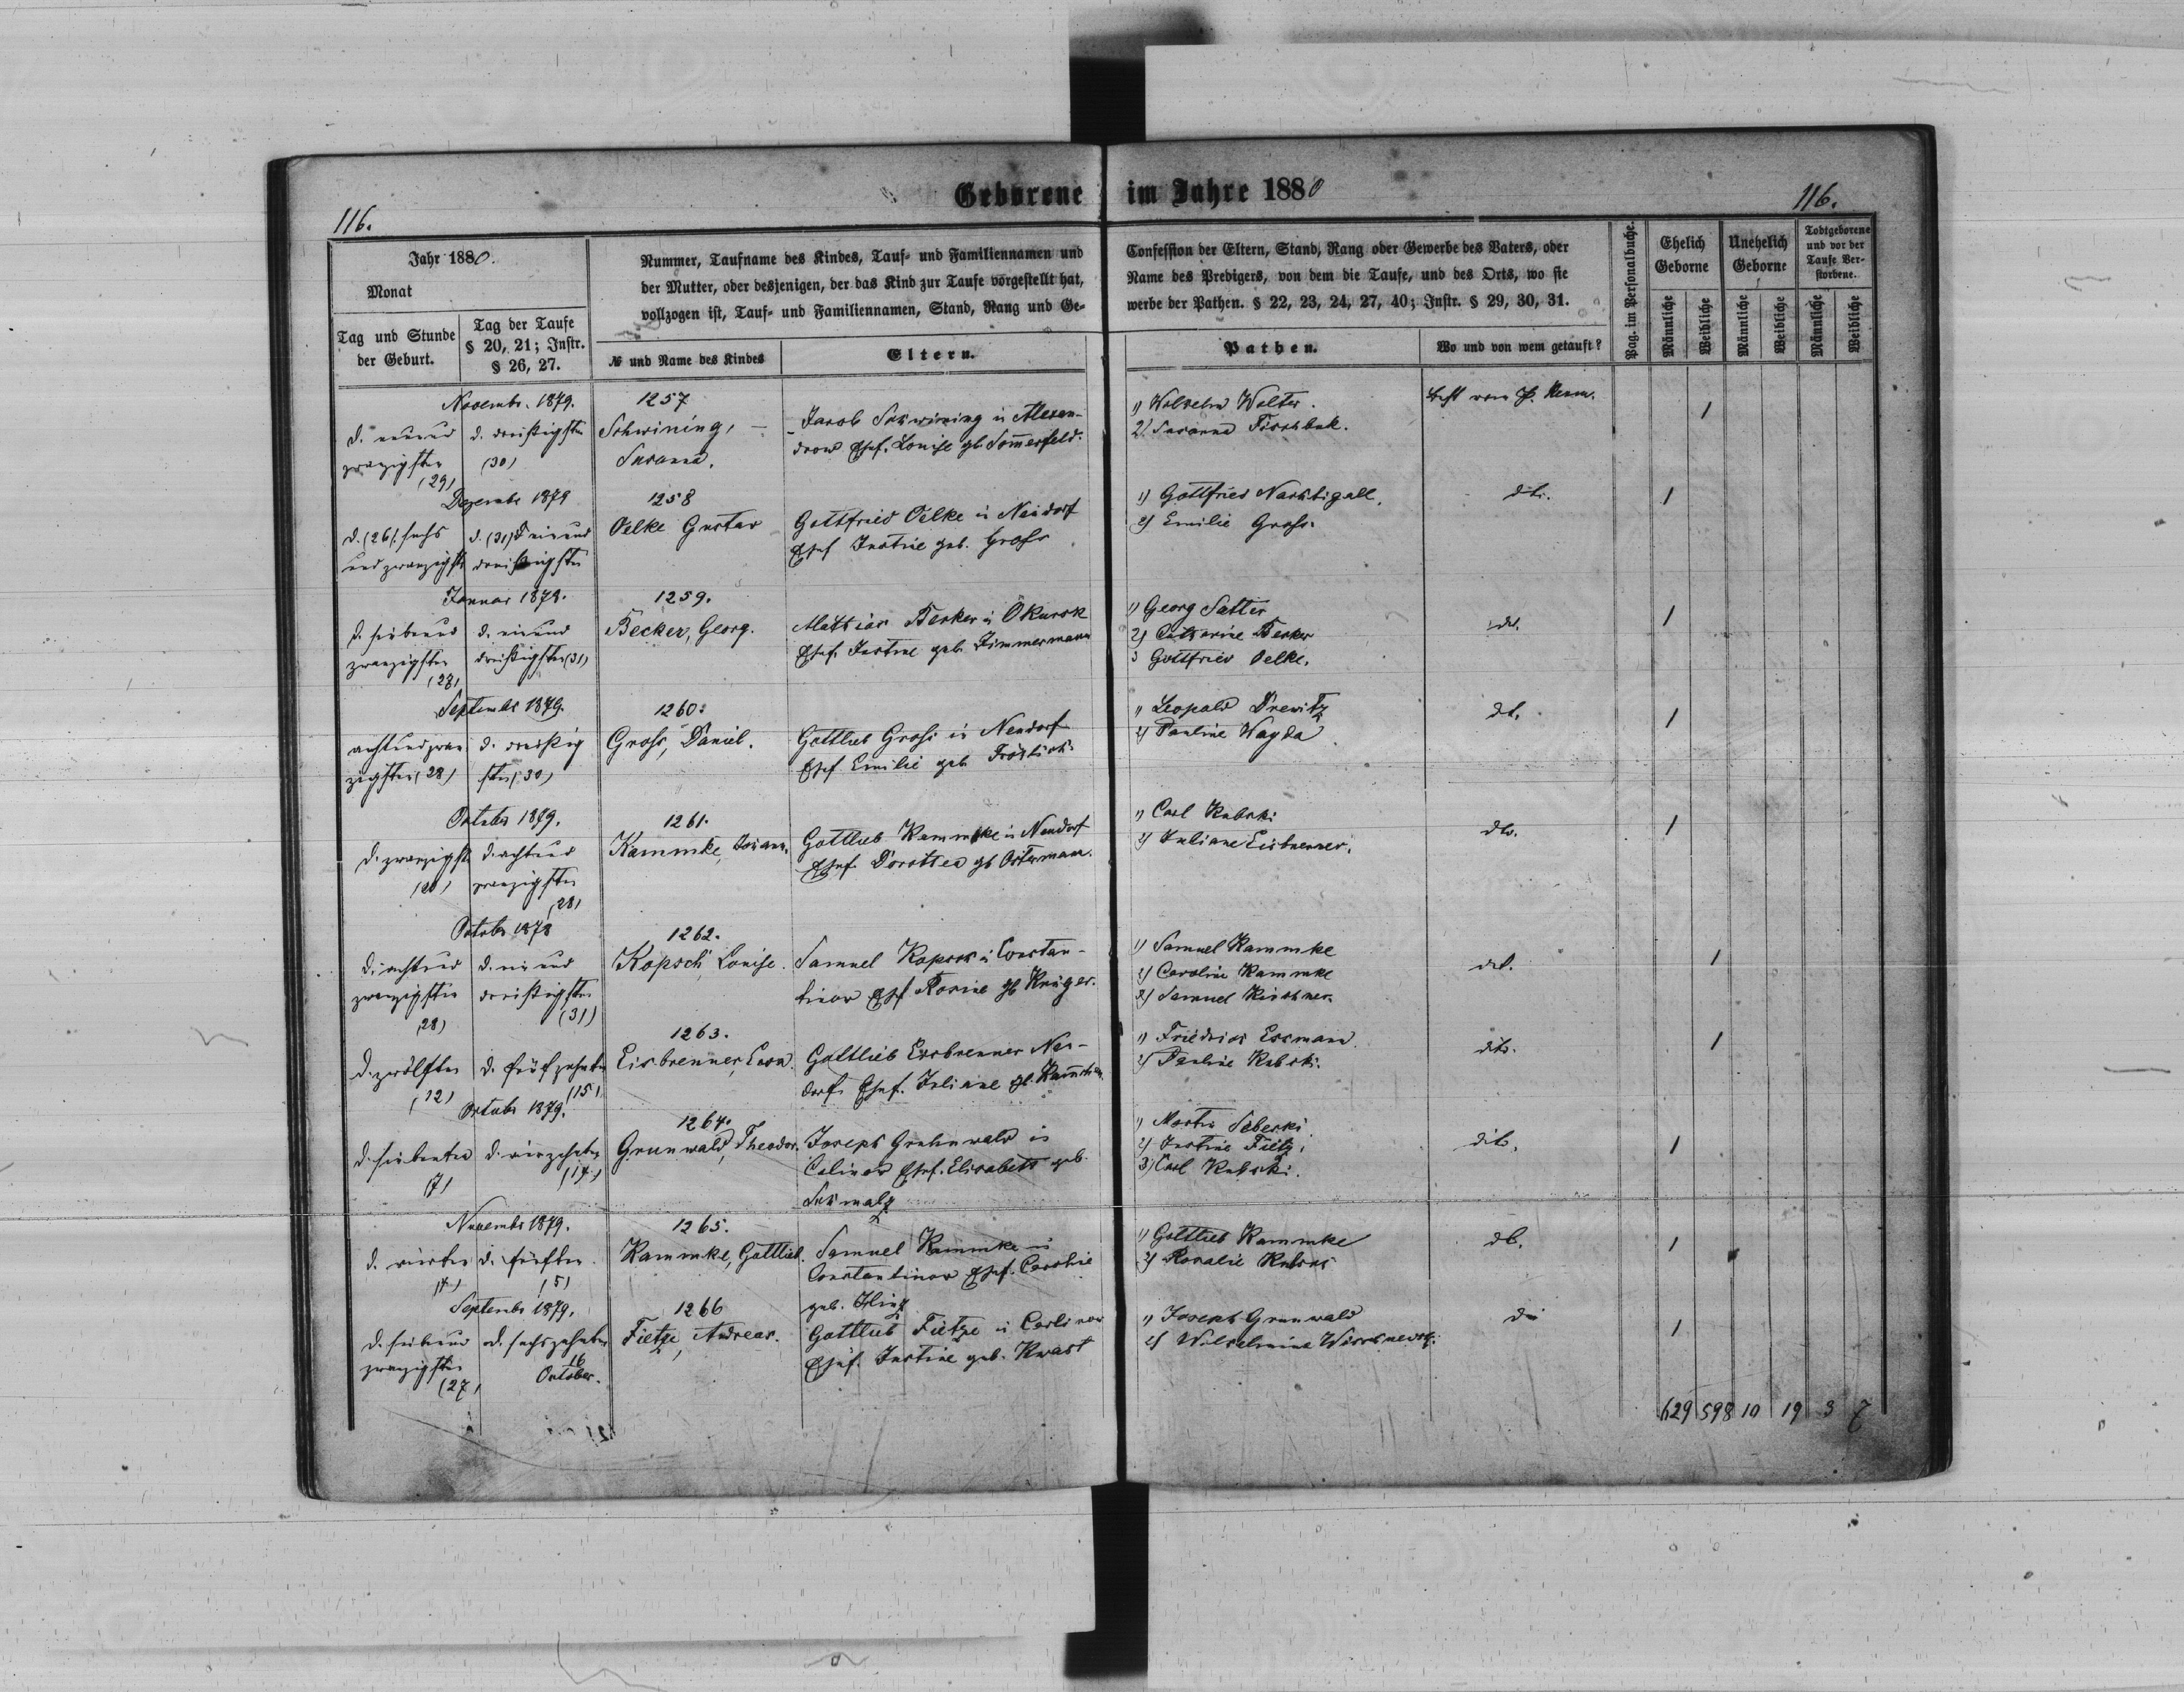 Geborene im Jahre 1880
116.
116.
Jahr 1880.
Monat
Tag und Stunde der Geburt.
Tag der Taufe § 20, 21; Instr. § 26, 27.
Nummer, Taufname des Kindes, Tauf- und Familiennamen und
der Mutter, oder desjenigen, der das Kind zur Taufe vorgestellt hat,
vollzogen ist, Tauf- und Familiennamen, Stand, Rang und Ge-
№ und Name des Kindes
Eltern.
Confession der Eltern, Stand, Rang oder Gewerbe des Vaters, oder
Name des Predigers, von dem die Taufe, und des Orts, wo sie
werbe der Pathen. § 22, 23, 24, 27, 40; Instr. § 29, 30, 31.
Pathen.
Wo und von wem getauft?
Pag. im Personalbuche.
Ehelich Geborne
Unehelich Geborne
Todtgeborene und vor der Taufe Verstorbene.
Männliche
Weibliche
Männliche
Weibliche
Männliche
Weibliche
Novembr. 1879.
d. neunund
zwanzigsten
(29)
d. dreißigsten
(30)
1257
Schwining,
Susanna.
Jacob Schwining in Alexan-
drow Ehef. Louise gb. Sommerfeld.
1) Wilhelm Wolter.
2) Susanna Fischbuk.
1
Dezember 1879
d. (26) sechs
und zwanzigste
d. (31) einund
dreißigsten
1258
Oelke Gustav
Gottfried Oelke in Neudorf
Ehef Justine geb. Gross
1) Gottfried Nachtigall.
2) Emilie Gross.
dto.
1
Januar 1879.
d. siebenund
zwanzigsten
d. einund
dreißigsten (31)
1259.
Becker, Georg.
Mathias Becker in Okursk
Ehef. Justine geb. Zimmermann
1) Georg Satter
2) Catharine Becker
3 Gottfried Oelke.
dto.
1
September 1879.
achtundzwan
zigsten (28)
d. dreißig
sten (30)
1260.
Gross, Daniel.
Gottlieb Gross in Neudorf
Ehef Emilie geb Fröhlich.
1) Leopold Drewitz
2) Pauline Wayda
dt.
1
October 1879.
d. zwanzigst
(20)
d. achtund
zwanzigsten
(28)
1261.
Kammke, Johann.
Gottlieb Kammke in Neudorf
Ehef. Dorothea gb Ostermann.
1) Carl Rubski
2) Juliane Eisbrenner.
dto.
1
October 1878
d. achtund
zwanzigsten
(28)
d. einund
dreißigsten
(31)
1262.
Kopsch, Louise.
Samuel Kopsch in Constan-
tinow Ehf Rosine gb Krüger.
1) Samuel Kammke
2) Caroline Kammke
3) Samuel Kirschner.
dto.
1
d. zwölften
(12)
d. fünfzehnten
(15)
1263.
Eisbrenner,
Gottlieb Eisbrenner Neu-
dorf Ehef. Juliane gb.
1) Friedrich Essmann
2) Pauline Rubski.
dito.
1
October 1879.
d. siebenten
(7)
d. vierzehnten
(14)
1264.
Grunwald, Theodor.
Joseph Grunwald in
Calinow Ehef. Elisabeth geb.
Schmalz
1) Martin Seberski
2) Justine Fietz.
3) Carl Rubski.
dito.
1
Novembr 1879.
d. vierten
(4)
d. fünften
(5)
1265.
Kammke, Gottlieb.
Samuel Kammke in
Constantinow Ehef. Caroline
geb. Hinz
1) Gottlieb Kammke
2) Rosalie
dt.
1
Septembr 1879.
d. siebenund
zwanzigsten
(27)
d. sechszehnten
16
October.
1266
Fietze, Andreas.
Gottlieb Fietze in Carlinow
Ehef. Justine geb. Kwast
1) Joseph Grunwald
2) Wilhelmine
do
1
629 598 10 19 3 7